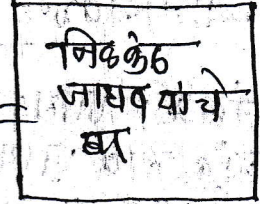 निळकंठ
जाधव यांचे
घर